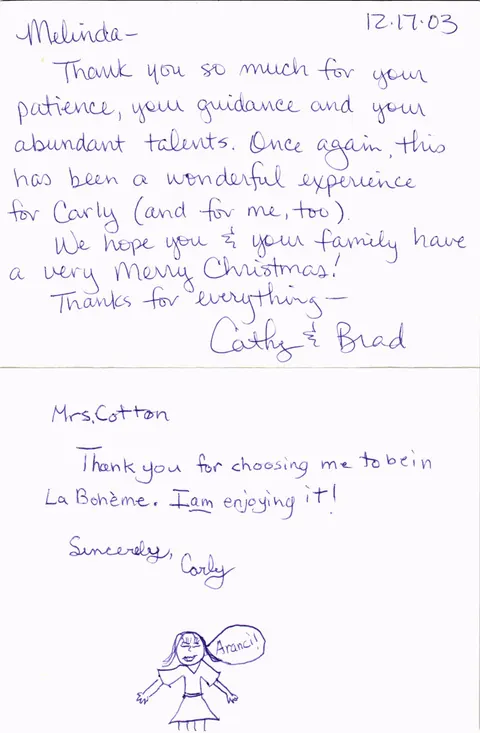 Melinda- 12.17.03
Thank you so much for your
patience, your guidance and your
abundant talents. Once again, this
has been a wonderful experience
for Carly (and for me, too).
We hope you & your family have
a very Merry Christmas!
Thanks for everything-
Cathy & Brad
Mrs. Cotton
Thank you for choosing me to be in
La Bohème. I am enjoying it!
Sincerely,
Carly
Aranci!